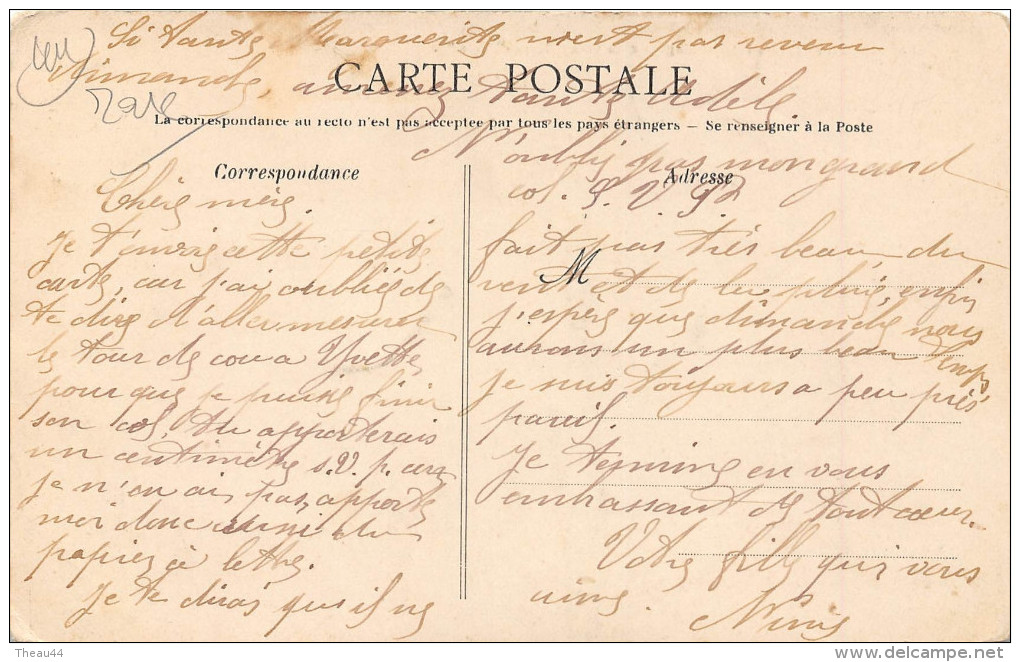 Si tante Marguerite n'est pas revenu
dimanche, amenez tante Adèle
CARTE POSTALE
La correspondance au recto n'est pas acceptée par tous les pays étrangers — Se renseigner à la Poste
N'oublij pas mon grand
col. S. V. P.
Correspondance
Chère mère.
Je t'envoie cette petite
carte, car j'ai oubliée de
te dire d'aller mesurer
le tour de cou a Yvette
pour que je puisse finir
son col, tu apporterais
un centimètre s. V. p. car
je n'en ai pas, apporte
moi donc aussi du
papier à lettre.
Je te dirai qu'il ne
Adresse
M
fait pas très beau, du
vent et de la pluie, enfin
j'espère que dimanche nous
aurons un plus beau temps
Je suis toujours a peu près
pareil.
Je termine en vous
embrassant de tout cœur.
Votre fille qui vous
aime.
Ninie
Theau44
www.delcampe.net